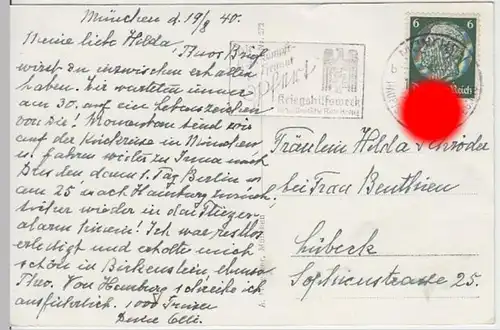 München d. 19/8 40.
Meine liebe Hilda, Theos Brief
wirst du inzwischen erhalten
haben. Wir warteten immer
am 30. auf ein Lebenszeichen
von Dir! Momentan sind wir
auf der Rückreise in München
u. fahren weiter zu Irma nach
Dresden dann 1 Tag Berlin u.
am 25 nach Hamburg zurück
wieder in den Flieger-
alarm hinein! Ich war restlos
erledigt und erholte mich
schön in Birkenstein ebenso
Theo. Von Hamburg schreibe ich
ausführlich. 1000 Grüße
Deine Elli.
kämpft
Heimat
opfert
Kriegshilfswerk
6
Reich
Fräulein Hilda Schröder
bei Frau Benthien
Lübeck
Sophienstrasse 25.